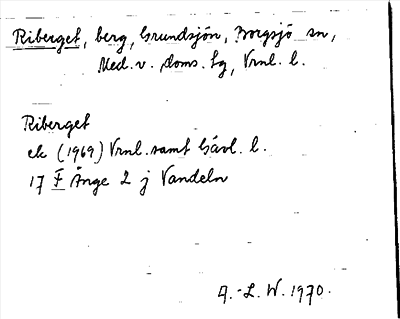 Riberget, berg, Grundsjön, Borgsjö sn,
Med. v. doms. tg, Vrnl. l.
Riberget
ek (1969) Vrnl. samt Gävl. l.
17 F Ånge 2 j Vandeln
A.-L. W. 1970.